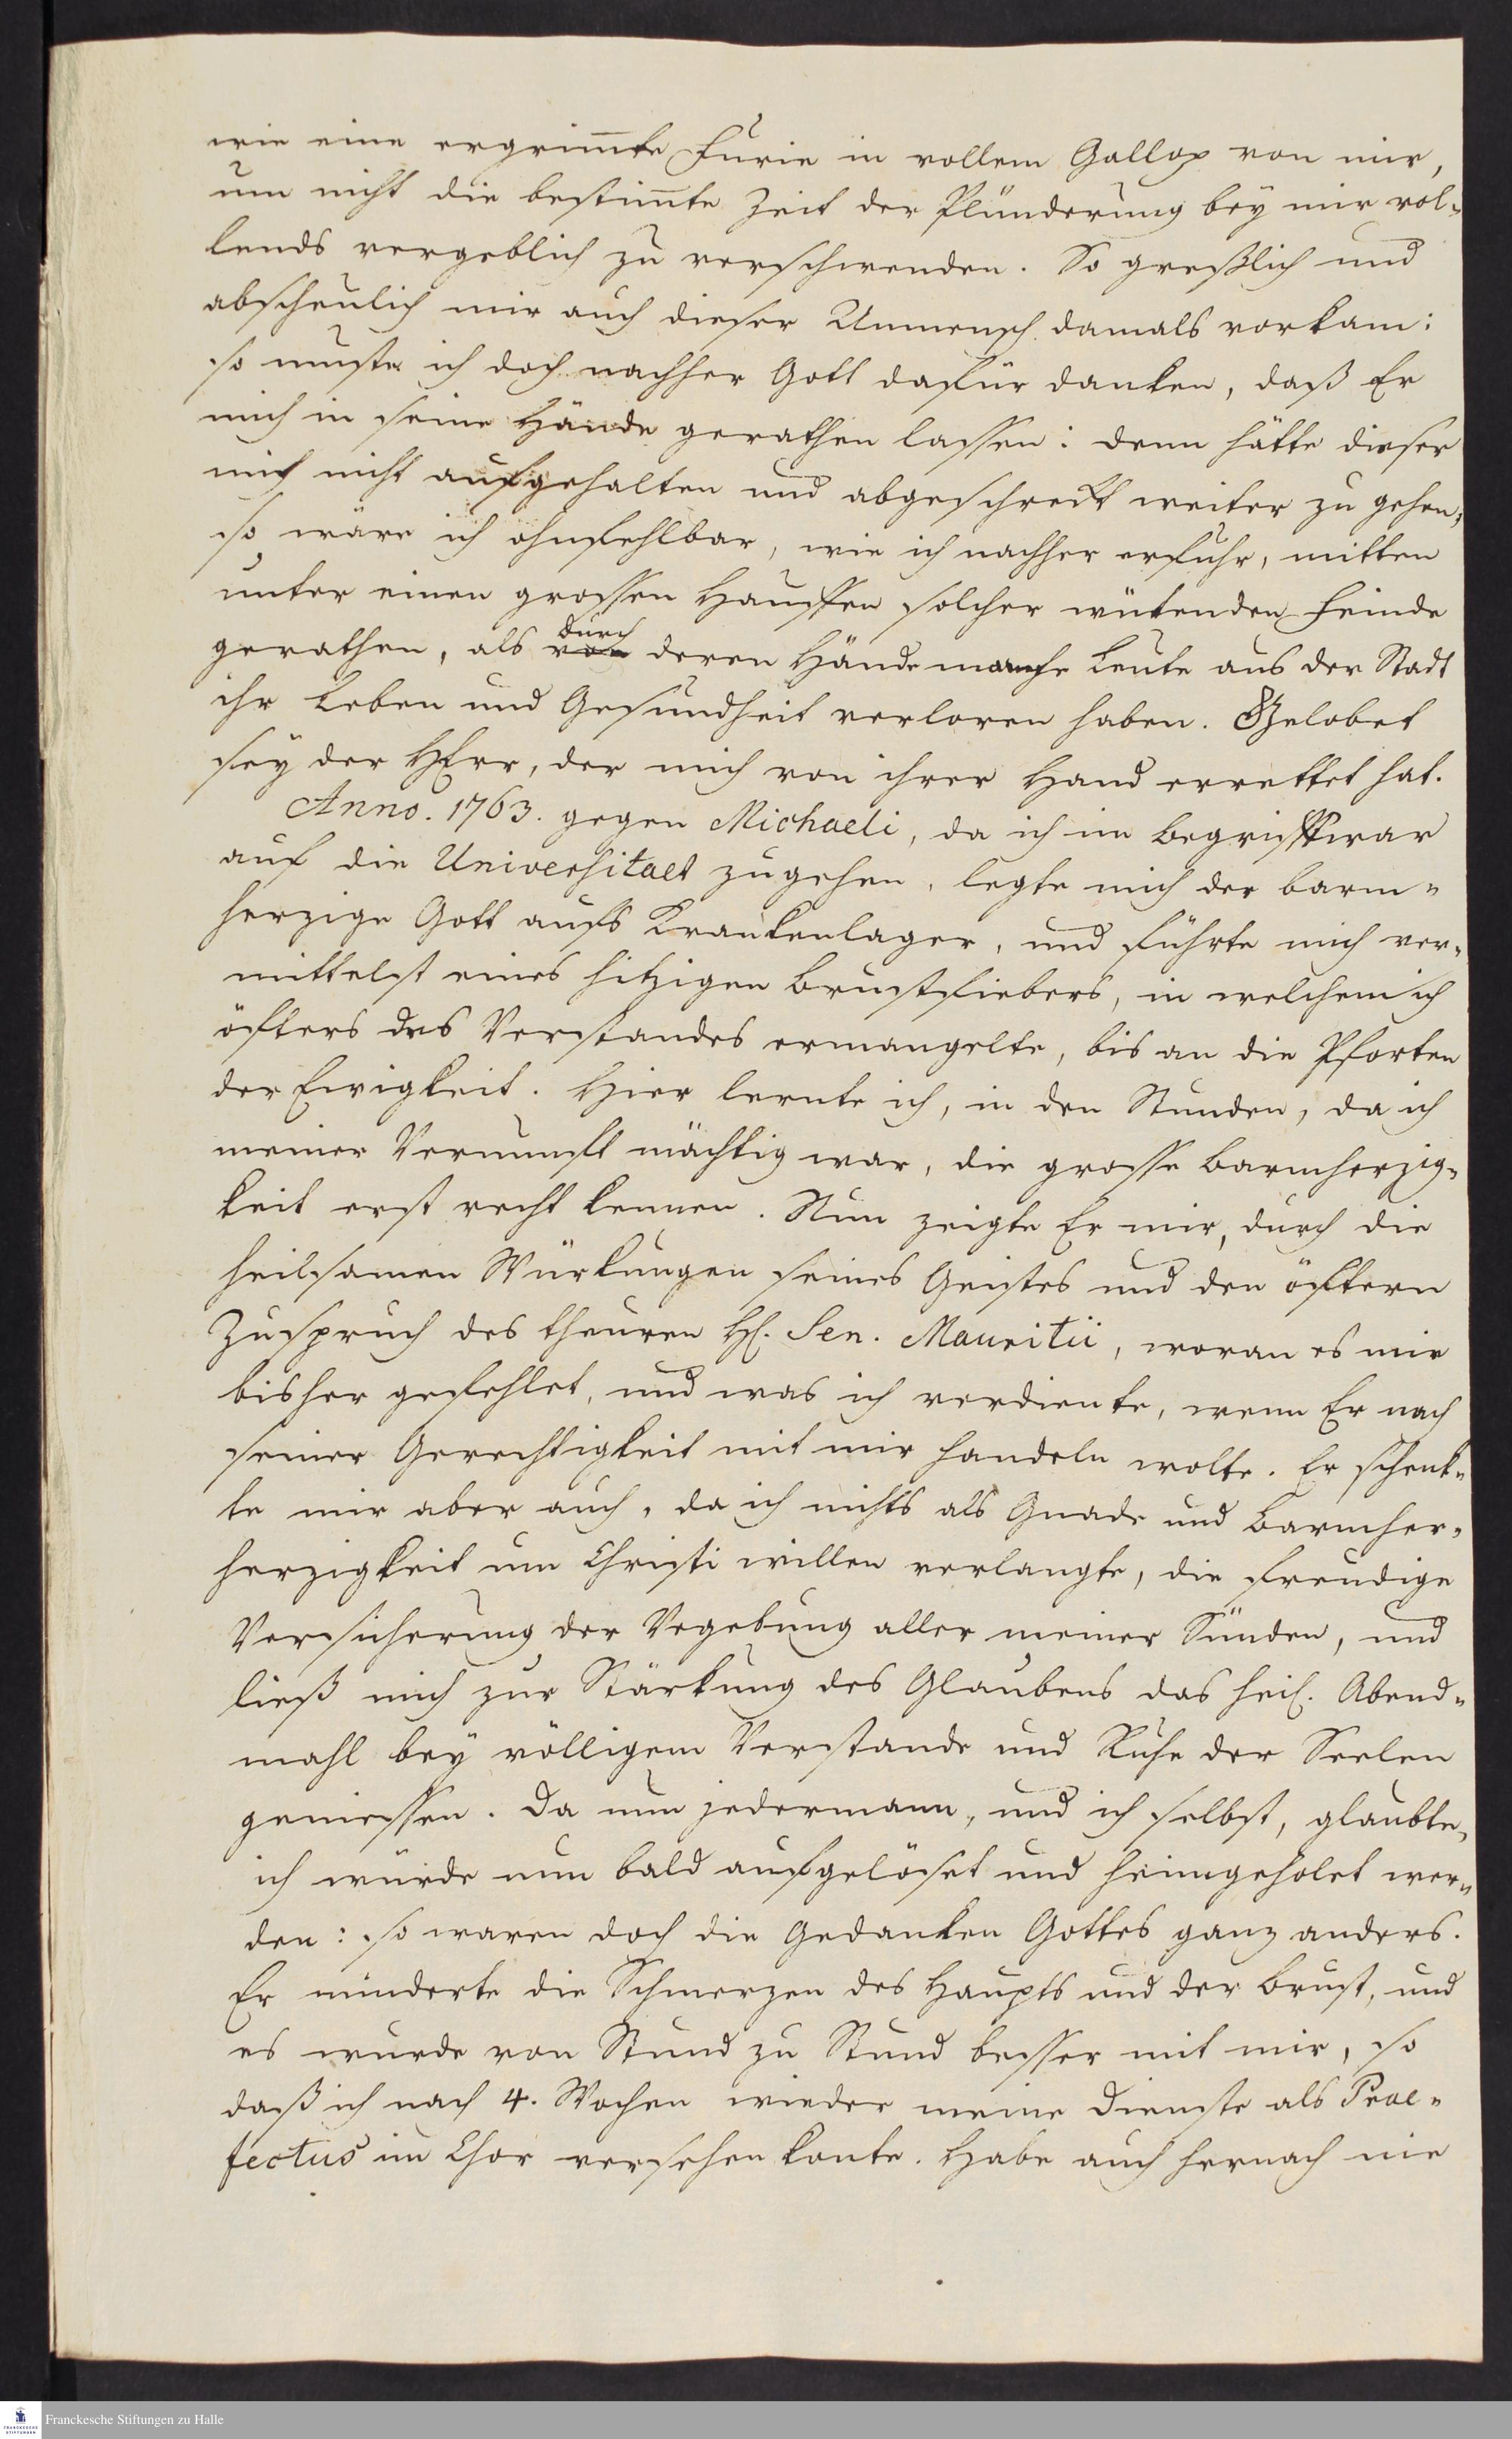 wie eine ergrim̅te Furie in vollem Gallop von mir,
um nicht die bestim̅te Zeit der Plünderung bey mir vol-
lends vergeblich zu verschwenden. So greßlich und
abscheulich mir auch dieser Unmensch damals vorkam:
so muste ich doch nachher Gott dafür danken, daß Er
mich in seine Hände gerathen lassen: denn hätte dieser
mich nicht aufgehalten und abgeschreckt weiter zu gehen,
so wäre ich ohnfehlbar, wie ich nachher erfuhr, mitten
unter einen grossen Hauffen solcher wütenden Feinde
gerathen, als von durch deren Hände manche Leute aus der Stadt
ihr Leben und Gesundheit verloren haben. Gelobet
sey der HErr, der mich von ihrer Hand errettet hat.
Anno. 1763. gegen Michaeli, da ich im Begriff war
auf die Universitaet zugehen, legte mich der barm-
herzige Gott aufs Krankenlager, und führte mich ver-
mittelst eines hitzigen Brustfiebers, in welchem ich
öfters des Verstandes ermangelte, bis an die Pforten
der Ewigkeit. Hier lernte ich, in den Stunden, da ich
meiner Vernunft mächtig war, die grosse Barmherzig-
keit erst recht kennen. Nun zeigte Er mir, durch die
heilsamen Würkungen seines Geistes und den öftern
Zuspruch des theuren H. Sen. Mauritii, woran es mir
bisher gefehlet, und was ich verdiente, wenn Er nach
seiner Gerechtigkeit mit mir handeln wolte. Er schenk-
te mir aber auch, da ich nichts als Gnade und Barmher-
herzigkeit um Christi willen verlangte, die freudige
Versicherung der Vegebung aller meiner Sünden, und
ließ mich zur Stärkung des Glaubens das heil. Abend-
mahl bey völligem Verstande und Ruhe der Seelen
geniessen. Da nun jedermann, und ich selbst, glaubte,
ich würde nun bald aufgelöset und heimgeholet wer-
den: so waren doch die Gedanken Gottes ganz anders.
Er minderte die Schmerzen des Haupts und der Brust, und
es wurde von Stund zu Stund besser mit mir, so
daß ich nach 4. Wochen wieder meine Dienste als Prae-
fectus im Chor versehen konte. Habe auch hernach nie
Franckesche Stiftungen zu Halle
FRANCKESCHE
STIFTUNGEN